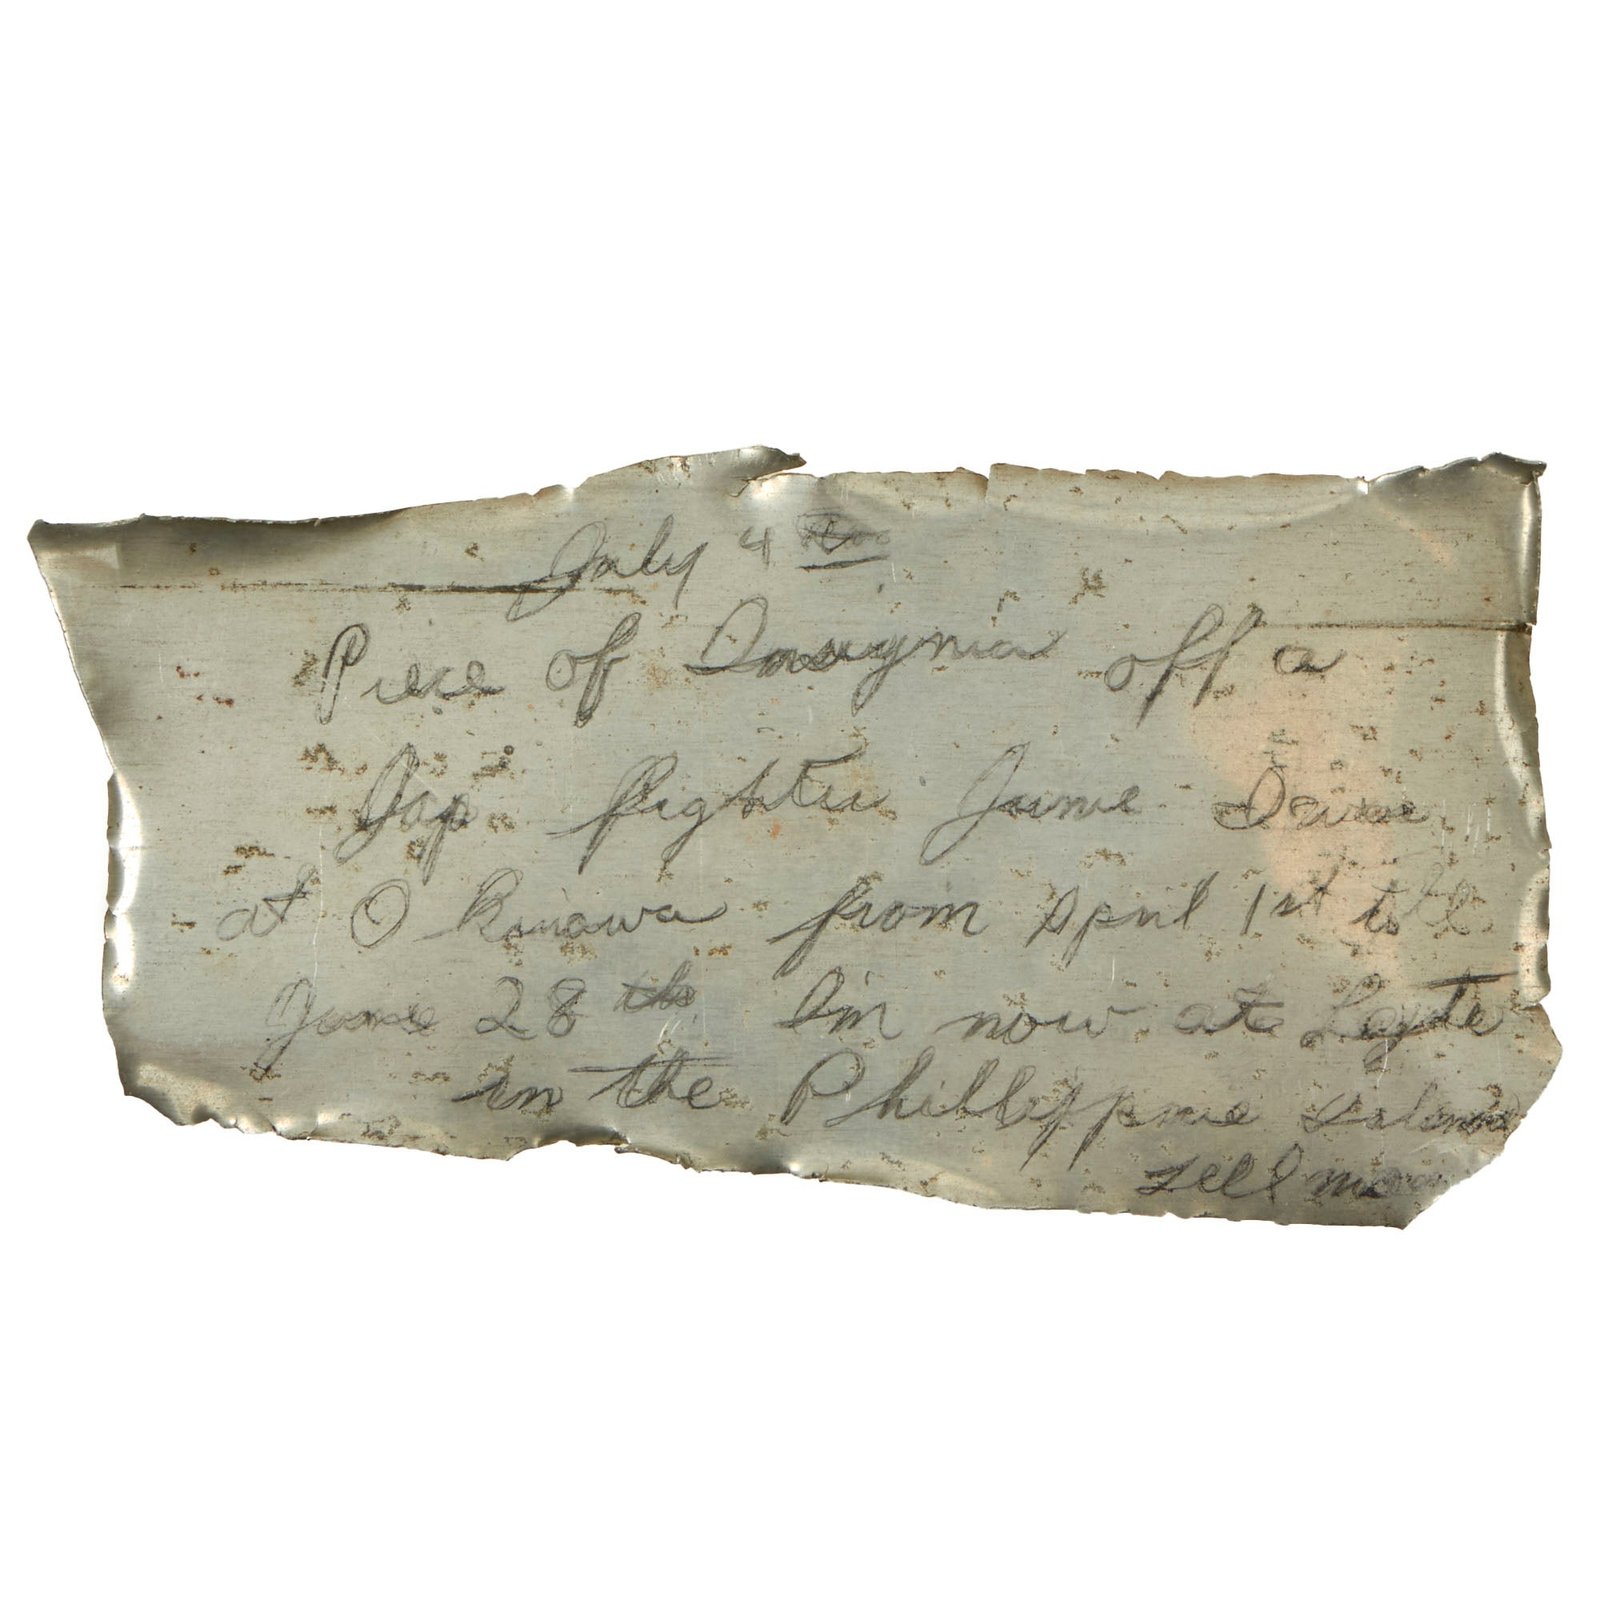 July 4
Piece of Insignia off a
Jap fighter June
at Okinawa from April 1st till
June 28th I'm now at Leyte
in the Phillippine
tell